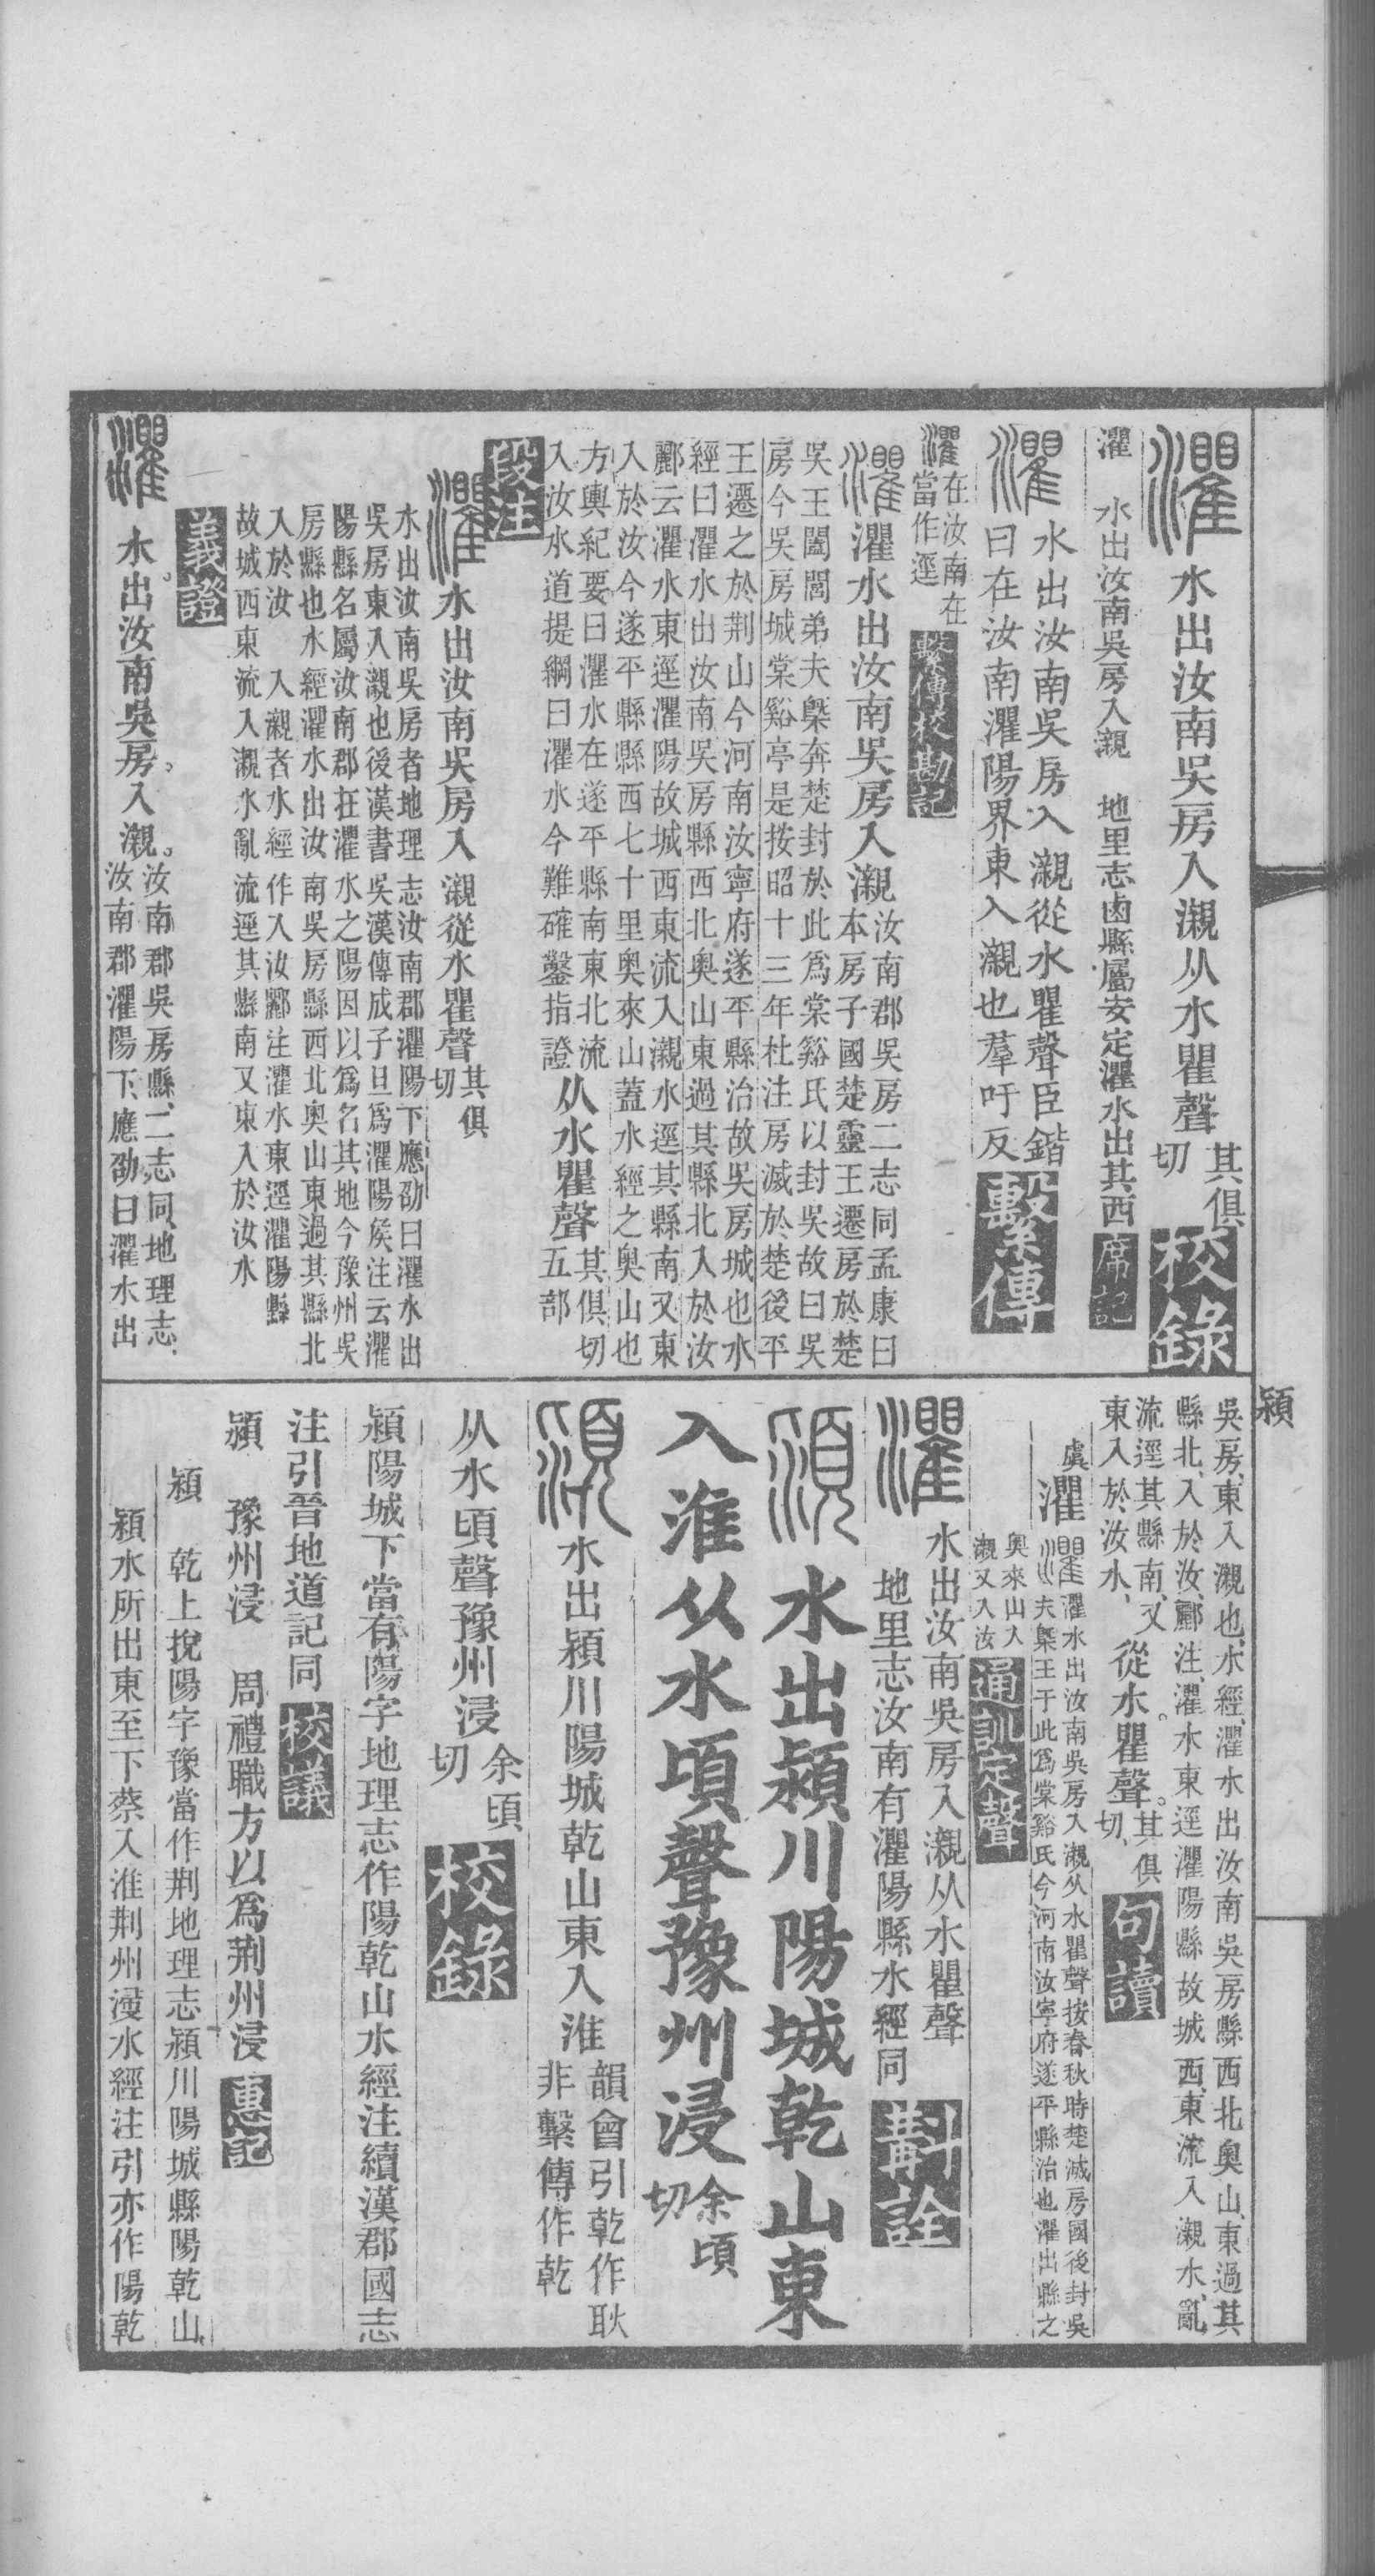 灈水出汝南吳房入瀙从水瞿聲其俱切校錄
灈　水出汝南吳房入瀙　地里志鹵縣屬安定灈水出其西席記
灈水出汝南吳房入瀙從水瞿聲臣鍇
曰在汝南灈陽界東入瀙也羣吁反繫傳
灈在汝南在
當作逕繫傳校勘記
灈灈水出汝南吳房入瀙汝南郡吳房二志同孟康曰
本房子國楚靈王遷房於楚
吳王闔閭弟夫槩奔楚封於此爲棠谿氏以封吳故曰吳
房今吳房城棠谿亭是按昭十三年杜注房滅於楚後平
王遷之於荆山今河南汝寧府遂平縣治故吳房城也水
經曰灈水出汝南吳房縣西北奥山東過其縣北入於汝
酈云灈水東逕灈陽故城西東流入瀙水逕其縣南又東
入於汝今遂平縣縣西七十里奥來山蓋水經之奥山也
方輿紀要曰灈水在遂平縣南東北流
入汝水道提綱曰灈水今難確鑿指證从水瞿聲其俱切
五部
段注
灈水出汝南吳房入瀙從水瞿聲其俱
切
水出汝南吳房者地理志汝南郡灈陽下應劭曰灈水出
吳房東入瀙也後漢書吳漢傳成子旦爲灈陽矦注云灈
陽縣名屬汝南郡在灈水之陽因以爲名其地今豫州吳
房縣也水經灈水出汝南吳房縣西北奥山東過其縣北
入於汝　入瀙者水經作入汝酈注灈水東逕灈陽縣
故城西東流入瀙水亂流逕其縣南又東入於汝水
義證
灈水出汝南吳房。入瀙。汝南郡吳房縣、二志同、地理志、
汝南郡灈陽下、應劭曰灈水出
吳房、東入瀙也、水經、灈水出汝南吳房縣西北奥山、東過其
縣北、入於汝、酈注、灈水東逕灈陽縣故城西、東流入瀙水、亂
流逕其縣南、又
東入於汝水、從水。瞿聲。其俱
切、句讀
虞灈灈灈水出汝南吳房入瀙从水瞿聲按春秋時楚滅房國後封吳
夫槩王于此爲棠谿氏今河南汝寧府遂平縣治也灈出縣之
奥來山入
瀙又入汝通訓定聲
灈水出汝南吳房入瀙从水瞿聲
地里志汝南有灈陽縣水經同斠詮
潁水出潁川陽城乾山東
入淮从水頃聲豫州浸余頃
切
潁水出潁川陽城乾山東入淮韻會引乾作耿
非繫傳作乾
从水頃聲豫州浸余頃
切校錄
潁陽城下當有陽字地理志作陽乾山水經注續漢郡國志
注引晉地道記同校議
潁　豫州浸　周禮職方以爲荆州浸惠記
潁　乾上捝陽字豫當作荆地理志潁川陽城縣陽乾山
潁水所出東至下蔡入淮荆州浸水經注引亦作陽乾
潁